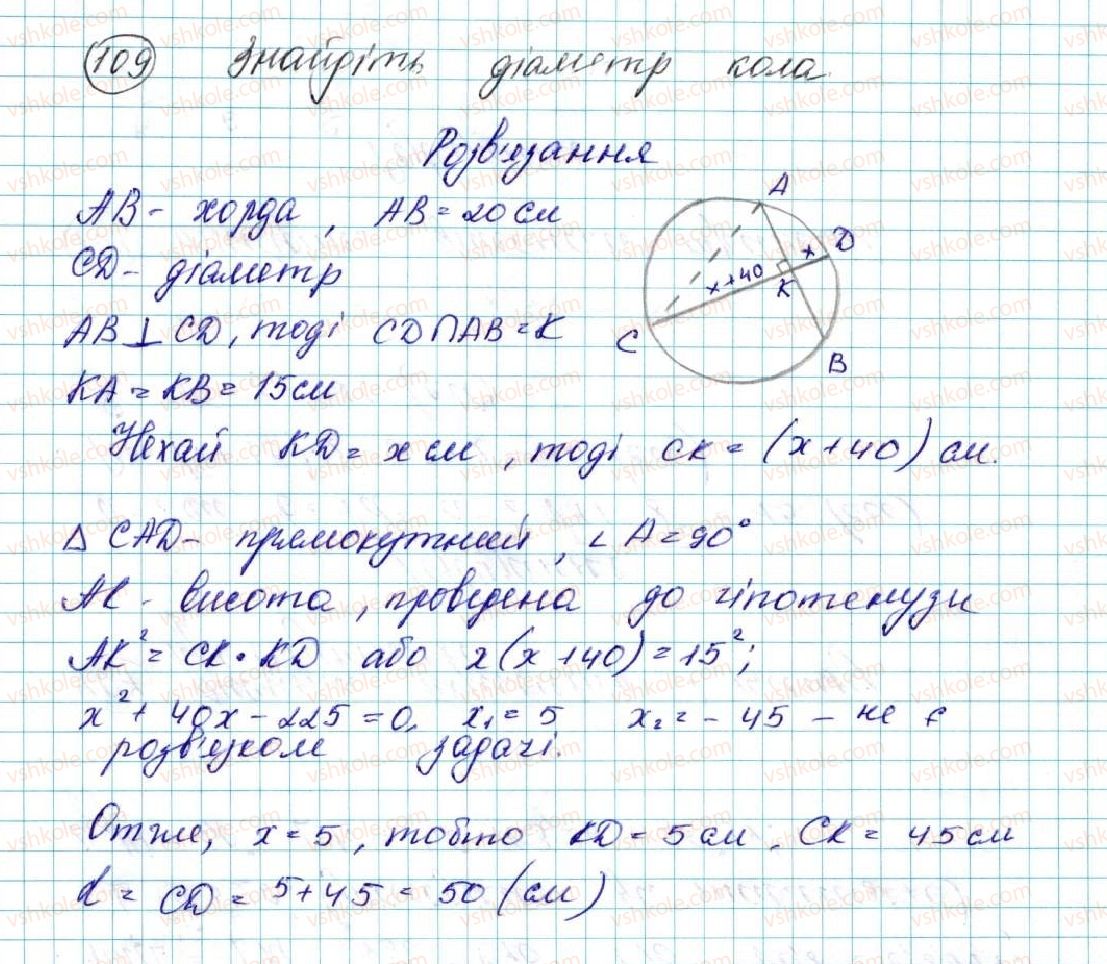 109 Знайдіть діаметр кола
Розв'язання
AB - хорда, AB = 20 см
CD - діаметр
AB ⊥ CD, тоді CD ∩ AB = K
KA = KB = 15 см
Нехай KD = x см, тоді CK = (x + 40) см.
△ CAD - прямокутний, ∠A = 90°
AK - висота, проведена до гіпотенузи
AK² = CK · KD або x(x + 40) = 15²;
x² + 40x - 225 = 0, x₁ = 5 x₂ = - 45 - не є
розв'язком задачі.
Отже, x = 5, тобто KD = 5 см, CK = 45 см
d = CD = 5 + 45 = 50 (см)
A
D
x
x + 40
K
C
B
vshkole.com